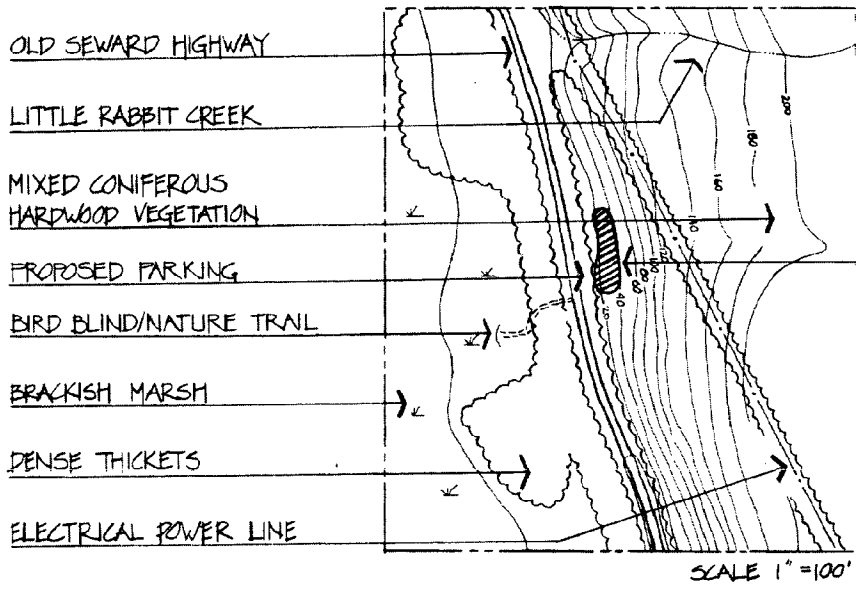 OLD SEWARD HIGHWAY
LITTLE RABBIT CREEK
MIXED CONIFEROUS
HARDWOOD VEGETATION
PROPOSED PARKING
BIRD BLIND/NATURE TRAIL
BRACKISH MARSH
DENSE THICKETS
ELECTRICAL POWER LINE
200
180
160
140
120
100
80
60
40
20
SCALE 1" = 100'